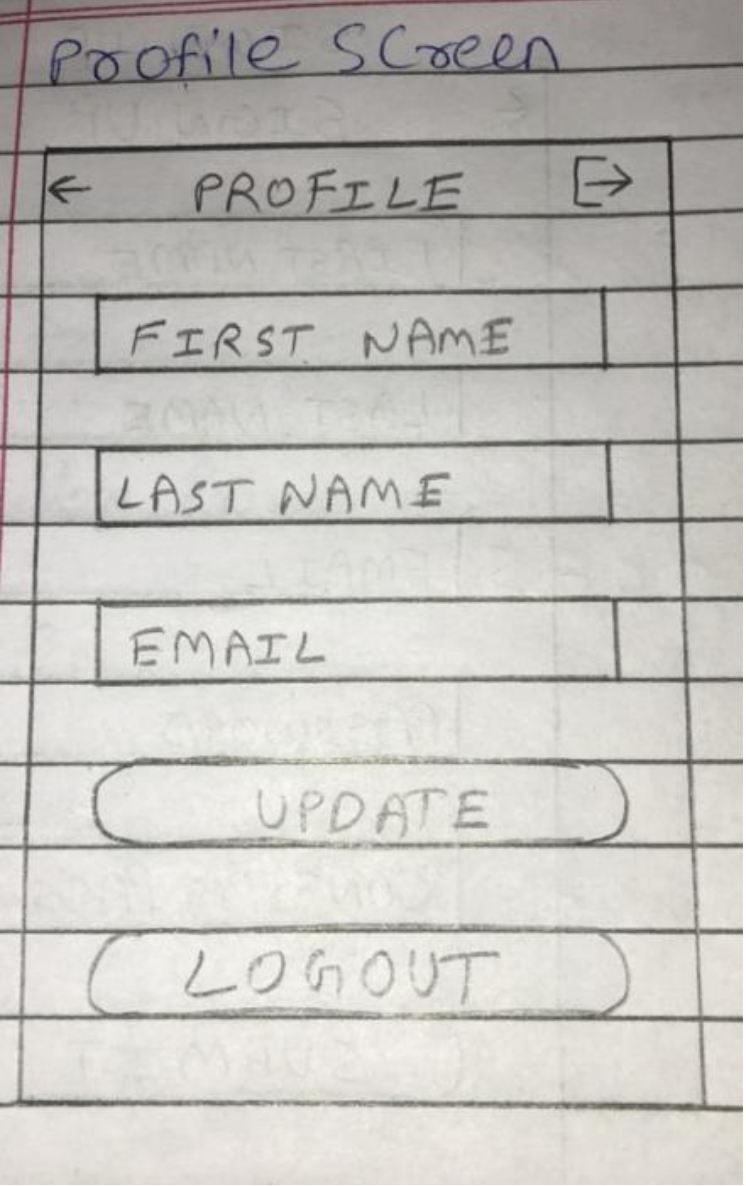 Profile Screen
← PROFILE
FIRST NAME
LAST NAME
EMAIL
UPDATE
LOGOUT